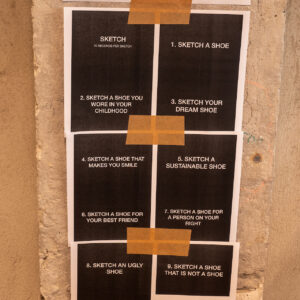 SKETCH
10 SECONDS PER SKETCH
1. SKETCH A SHOE
2. SKETCH A SHOE YOU
WORE IN YOUR
CHILDHOOD
3. SKETCH YOUR
DREAM SHOE
4. SKETCH A SHOE THAT
MAKES YOU SMILE
5. SKETCH A
SUSTAINABLE SHOE
6. SKETCH A SHOE FOR
YOUR BEST FRIEND
7. SKETCH A SHOE FOR
A PERSON ON YOUR
RIGHT
8. SKETCH AN UGLY
SHOE
9. SKETCH A SHOE
THAT IS NOT A SHOE